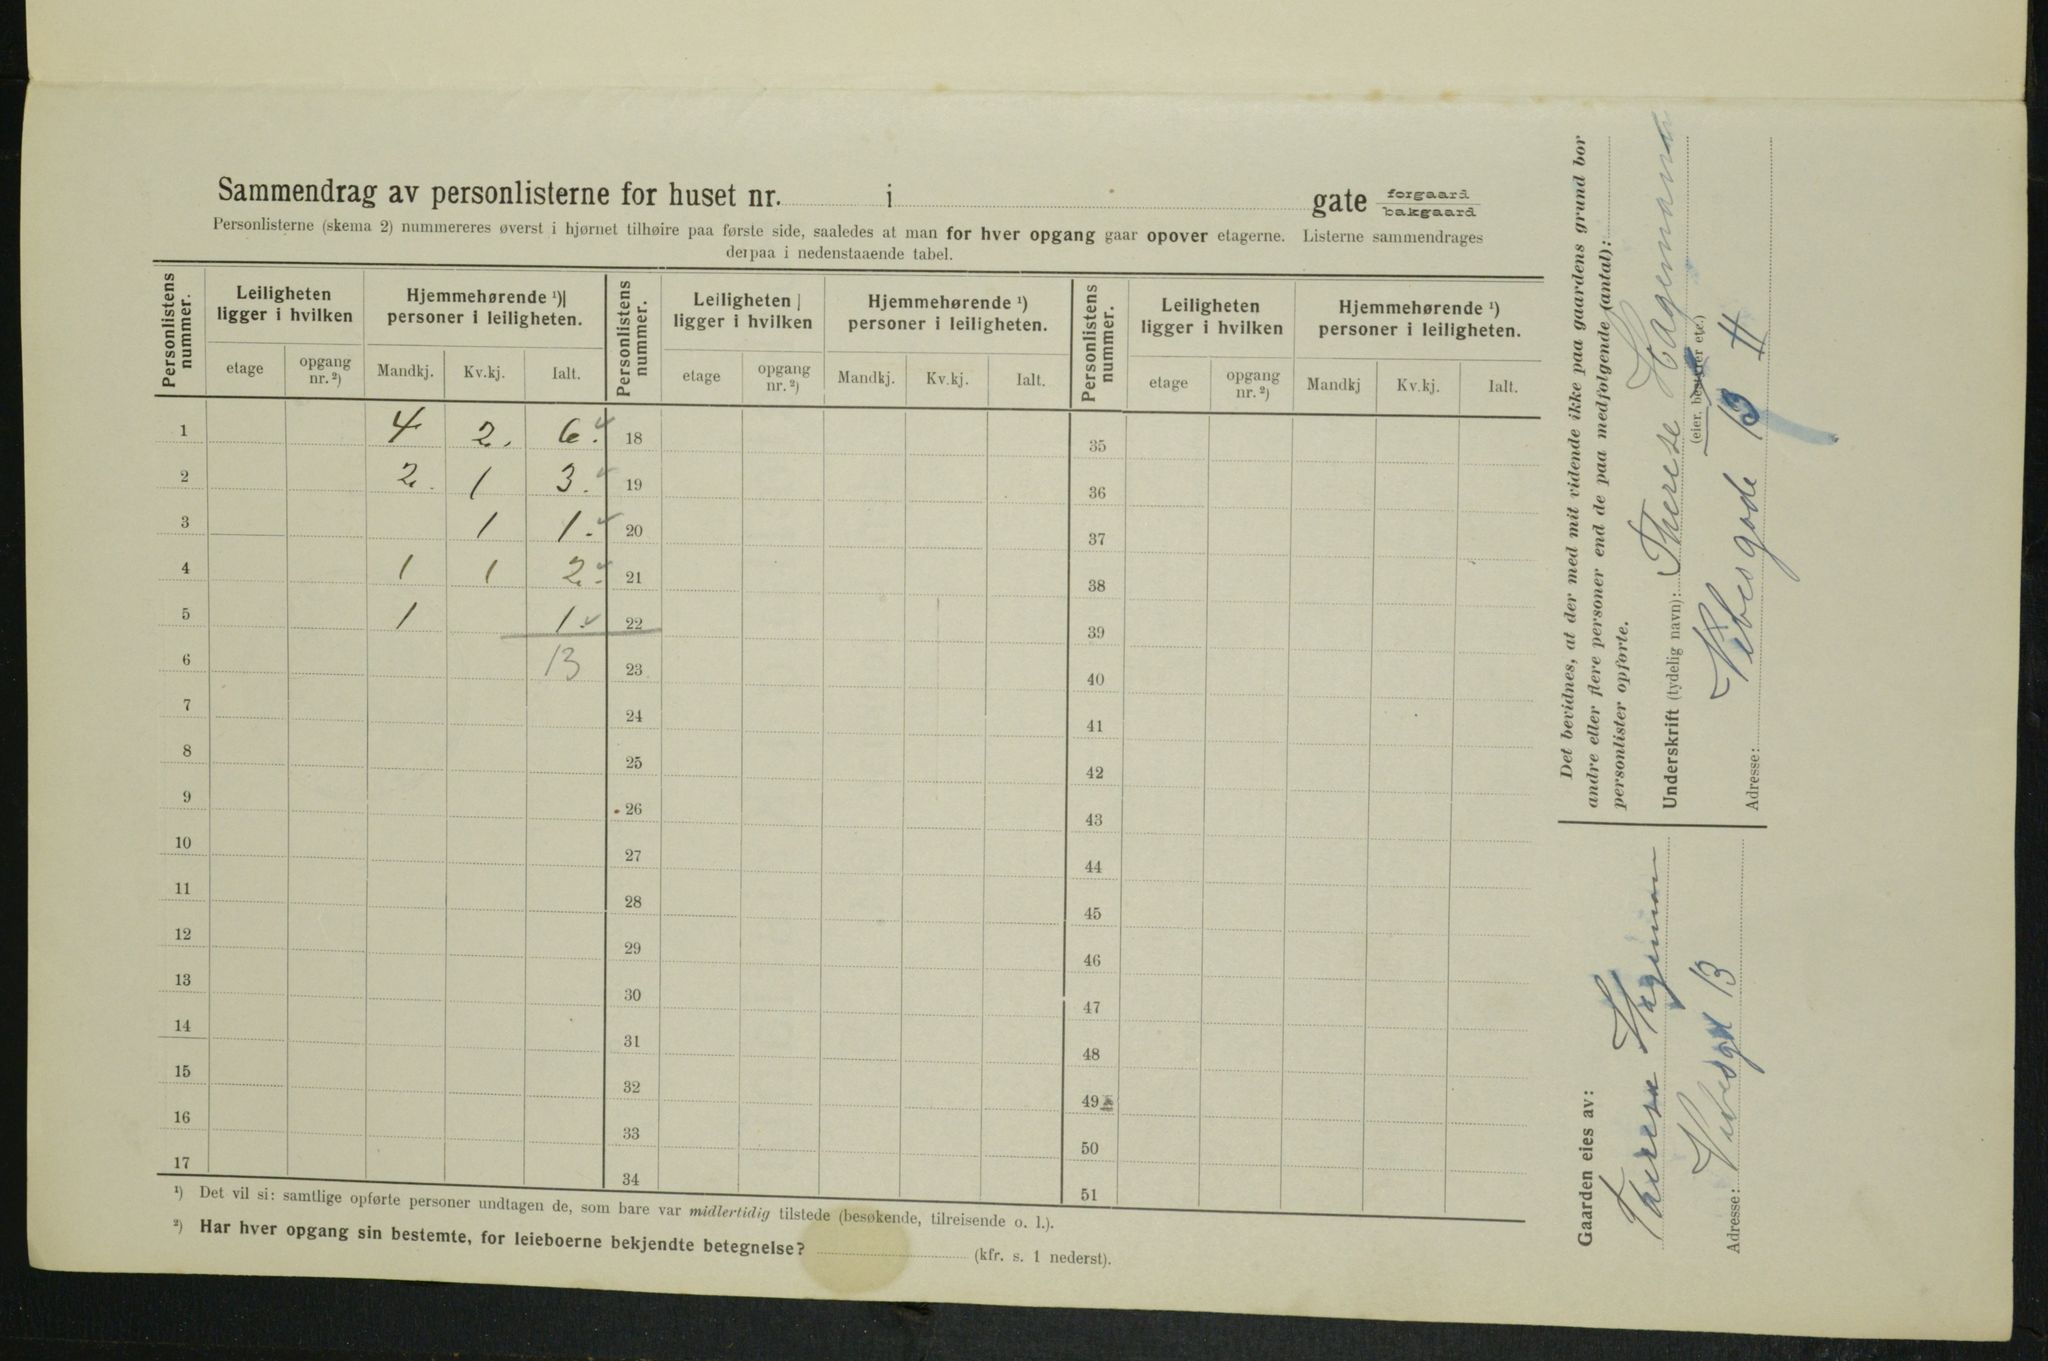 Sammendrag av personlisterne for huset nr. i gate forgaard bakgaard
Personlisterne (skema 2) nummereres øverst i hjørnet tilhøire paa første side, saaledes at man for hver opgang gaar opover etagerne. Listerne sammendrages
derpaa i nedenstaaende tabel.
Personlistens nummer. Leiligheten ligger i hvilken Hjemmehørende ¹) personer i leiligheten. Personlistens nummer. Leiligheten ligger i hvilken Hjemmehørende ¹) personer i leiligheten. Personlistens nummer. Leiligheten ligger i hvilken Hjemmehørende ¹) personer i leiligheten.
etage opgang nr. ²) Mandkj. Kv.kj. Ialt. etage opgang nr. ²) Mandkj. Kv.kj. Ialt. etage opgang nr. ²) Mandkj Kv.kj. Ialt.
1 4 2. 6. 18 35
2 2. 1 3. 19 36
3 1 1. 20 37
4 1 1 2. 21 38
5 1 1. 22 39
6 13 23 40
7 24 41
8 25 42
9 26 43
10 27 44
11 28 45
12 29 46
13 30 47
14 31 48
15 32 49
16 33 50
17 34 51
¹) Det vil si: samtlige opførte personer undtagen de, som bare var midlertidig tilstede (besøkende, tilreisende o. l.).
²) Har hver opgang sin bestemte, for leieboerne bekjendte betegnelse? (kfr. s. 1 nederst).
Det bevidnes, at der med mit vidende ikke paa gaardens grund bor
andre eller flere personer end de paa medfølgende (antal):
personlister opførte.
Underskrift (tydelig navn): Therese Hagemann
(eier, bestyrer etc.)
Adresse: Vibesgade 13 II
Gaarden eies av:
Therese Hageman
Adresse: Vibesgt 13